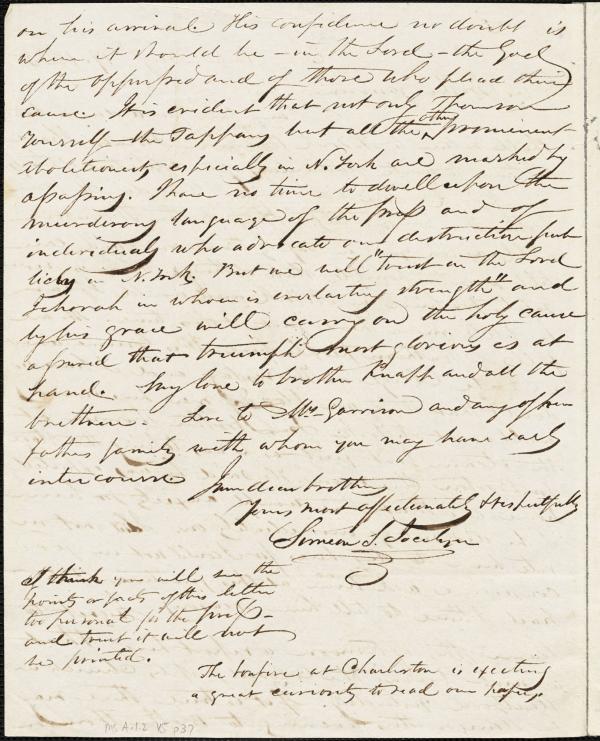 on his arrival. His confidence no doubt is
where it should be – in the Lord – the God
of the oppressed and of those who plead their
cause. It is evident that not only Thomson
yourself – the Tappans but all the other prominent
abolitionists, especially in N. York are marked by
assassins. I have no time to dwell upon the
murderous language of the press and of
individuals who advocate our destruction pub
licly in N. York. But we will "trust in the Lord
Jehovah in whom is everlasting strength" and
by his grace will carry on the holy cause
assured that triumph most glorious is at
hand. My love to brother Knapp and all the
brethren. Love to Mrs. Garrison and any of her
fathers family with whom you may have early
intercourse.
I am dear brother
Yours most affectionately & respectfully
Simeon S. Jocelyn
I think you will see the
points or facts of this letter
too personal for the press –
and trust it will not
be printed.
The bonfire at Charleston is exciting
a great curiosity to read our papers.
Ms. A.1.2 V5 p37